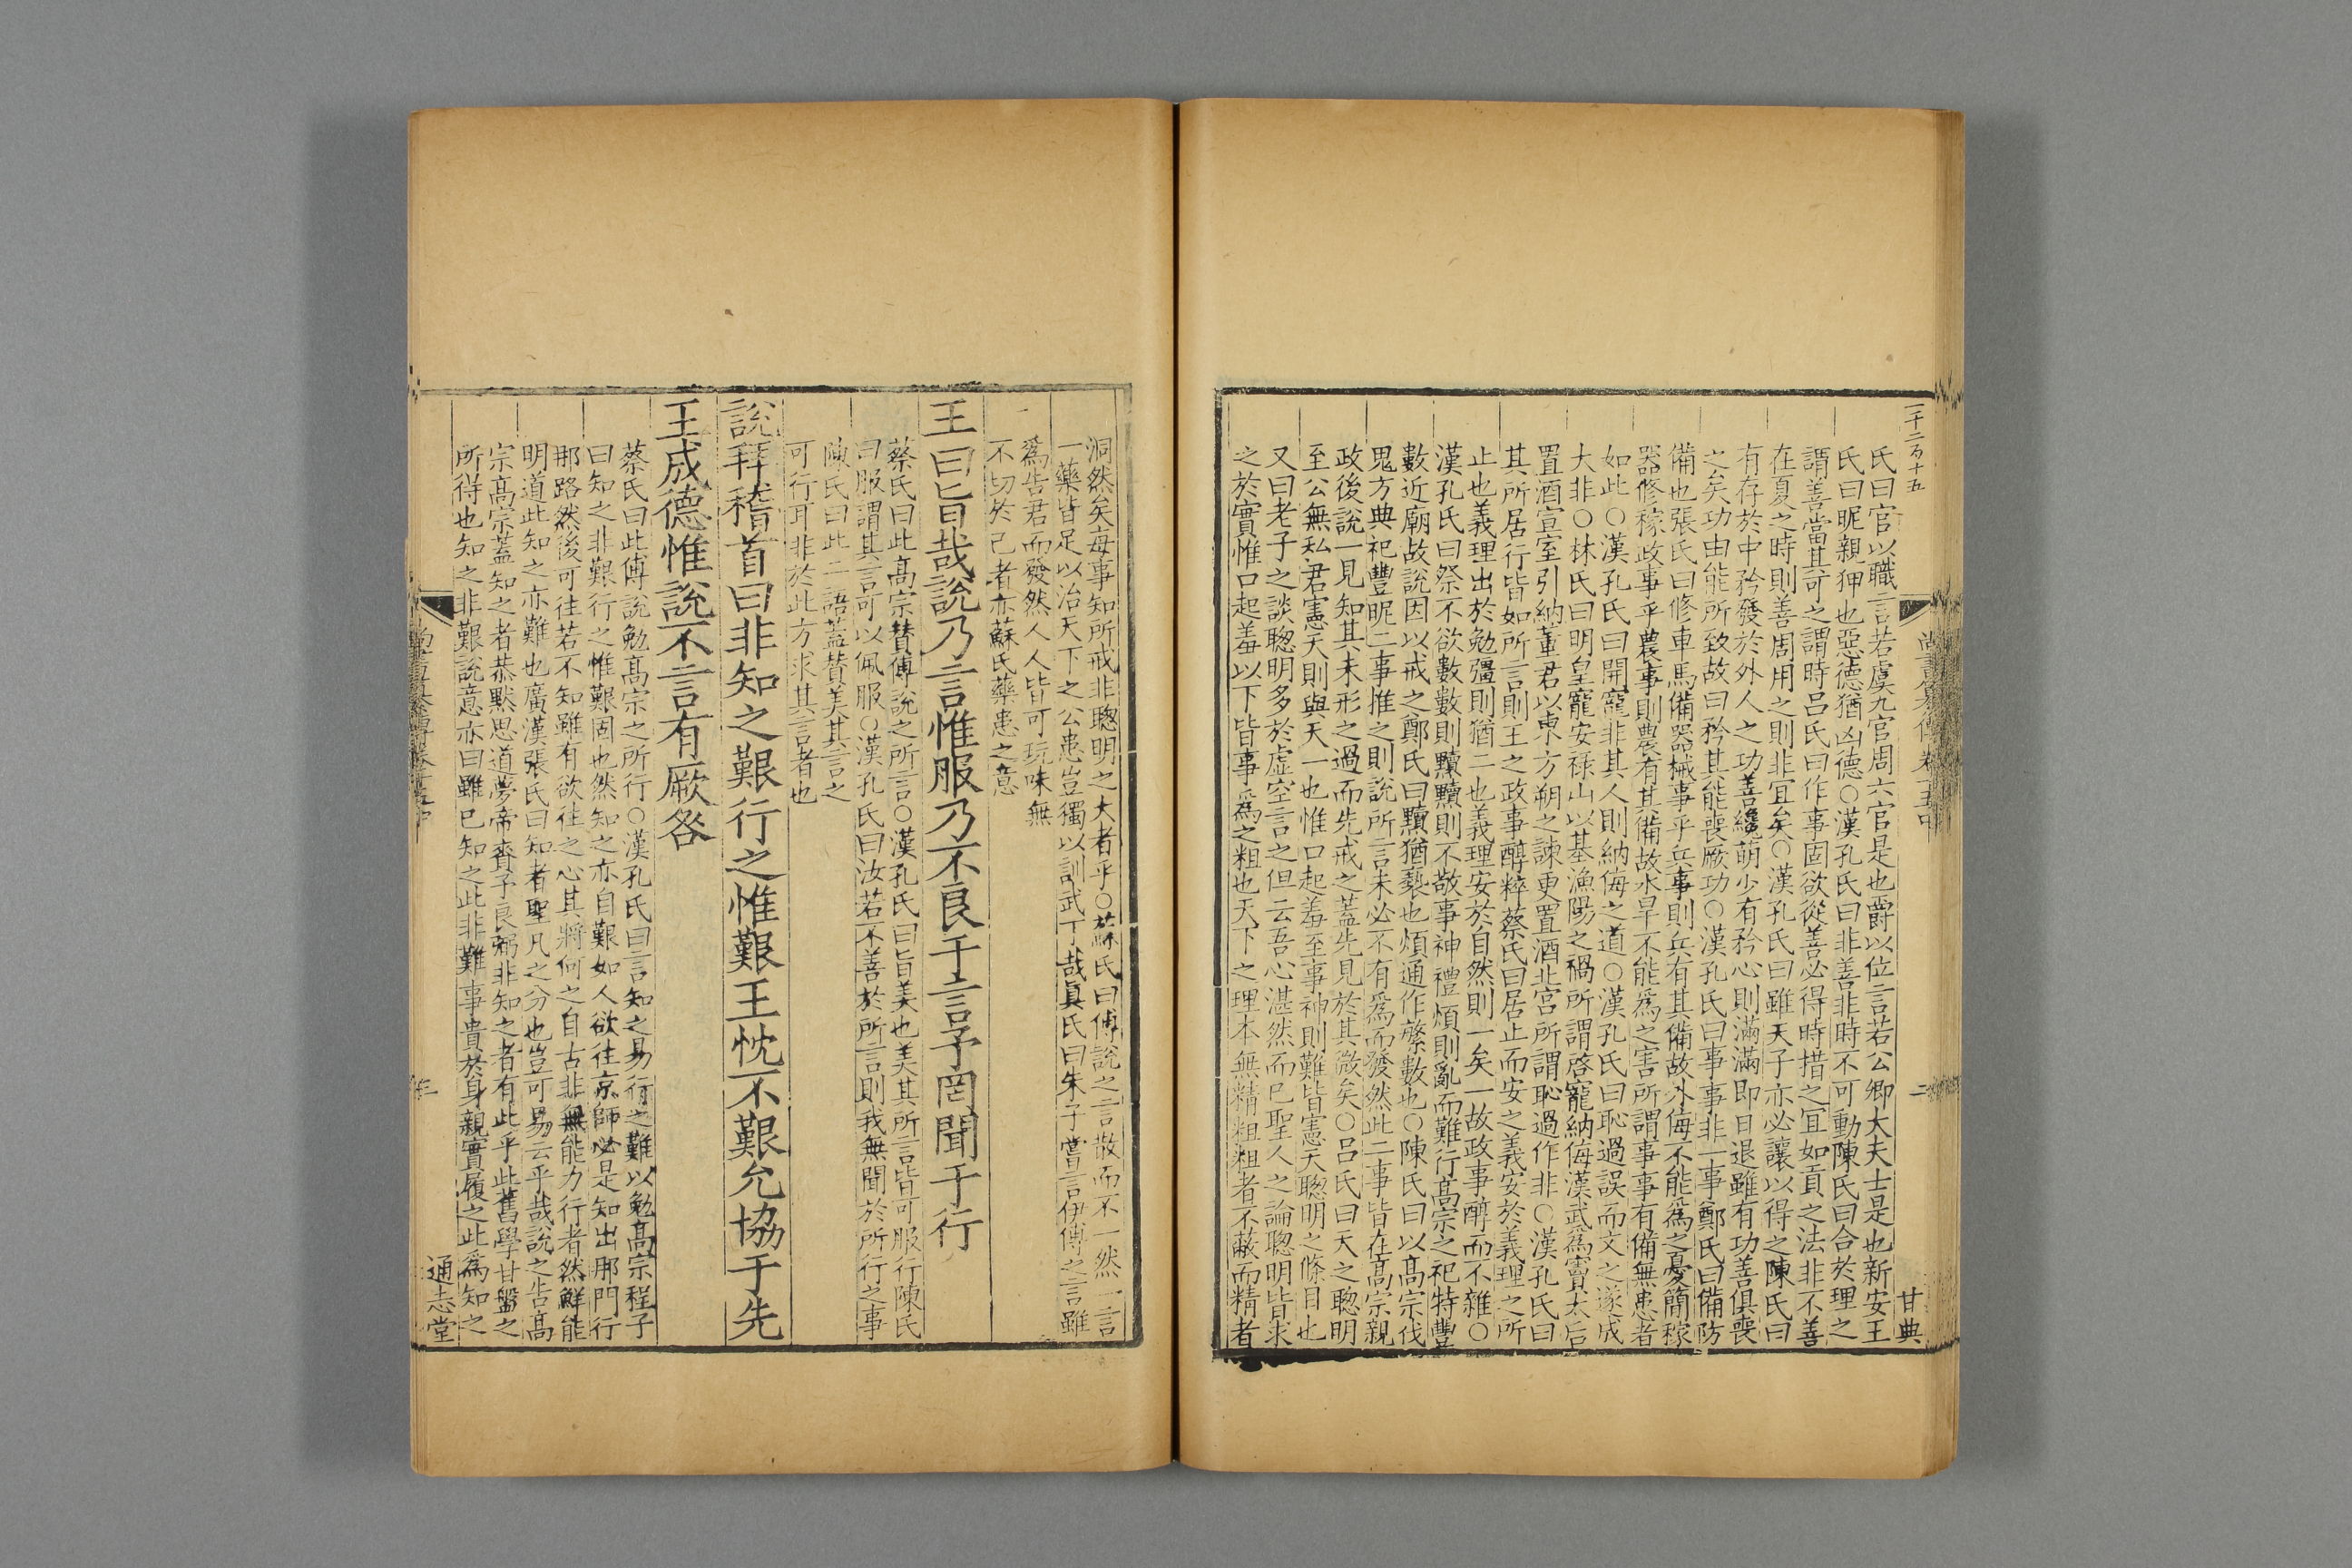 一千二百十五
尚書纂傳卷十五中
二
甘典
氏曰官以職言若虞九官周六官是也爵以位言若公卿大夫士是也新安王
氏曰昵親狎也惡德猶凶德○漢孔氏曰非善非時不可動陳氏曰合於理之
謂善當其可之謂時呂氏曰作事固欲從善必得時措之宜如貢之法非不善
在夏之時則善周用之則非宜矣○漢孔氏曰雖天子亦必讓以得之陳氏曰
有存於中矜發於外人之功善纔萌少有矜心則滿滿即日退雖有功善俱喪
之矣功由能所致故曰矜其能喪厥功○漢孔氏曰事事非一事鄭氏曰備防
備也張氏曰修車馬備器械事乎兵事則兵有其備故外侮不能爲之憂簡稼
器修稼政事乎農事則農有其備故水旱不能爲之害所謂事事有備無患者
如此○漢孔氏曰開寵非其人則納侮之道○漢孔氏曰恥過誤而文之遂成
大非○林氏曰明皇寵安祿山以基漁陽之禍所謂啓寵納侮漢武爲竇太后
置酒宣室引納董君以東方朔之諫更置酒北宮所謂恥過作非○漢孔氏曰
其所居行皆如所言則王之政事醇粹蔡氏曰居止而安之義安於義理之所
止也義理出於勉彊則猶二也義理安於自然則一矣一故政事醇而不雜○
漢孔氏曰祭不欲數數則黷黷則不敬事神禮煩則亂而難行高宗之祀特豐
數近廟故說因以戒之鄭氏曰黷猶褻也煩通作蘩數也○陳氏曰以高宗伐
鬼方典祀豐昵二事惟之則說所言未必不有爲而發然此二事皆在高宗親
政後說一見知其未形之過而先戒之蓋先見於其微矣○呂氏曰天之聰明
至公無私君憲天則與天一也惟口起羞至事神則難皆憲天聰明之條目也
又曰老子之談聰明多於虛空言之但云吾心湛然而已聖人之論聰明皆求
之於實惟口起羞以下皆事爲之粗也天下之理本無精粗粗者不蔽而精者
洞然矣每事知所戒非聰明之大者乎○蘇氏曰傅說之言散而不一然一言
一藥皆足以治天下之公患豈獨以訓武丁哉眞氏曰朱子嘗言伊傅之言雖
爲告君而發然人人皆可玩味無
不切於己者亦蘇氏藥患之意
王曰旨哉說乃言惟服乃不良于言予罔聞于行
蔡氏曰此高宗贊傅說之所言○漢孔氏曰旨美也美其所言皆可服行陳氏
曰服謂其言可以佩服○漢孔氏曰汝若不善於所言則我無聞於所行之事
陳氏曰此二語蓋贊美其言之
可行耳非於此方求其言者也
說拜稽首曰非知之艱行之惟艱王忱不艱允協于先
王成德惟說不言有厥咎
蔡氏曰此傅說勉高宗之所行○漢孔氏曰言知之易行之難以勉高宗程子
曰知之非艱行之惟艱固也然知之亦自艱如人欲往京師必是知出那門行
那路然後可往若不知雖有欲往之心其將何之自古非無能力行者然鮮能
明道此知之亦難也廣漢張氏曰知者聖凡之分也豈可易云乎哉說之告高
宗高宗蓋知之者恭默思道夢帝賚予良弼非知之者有此乎此舊學甘盤之
所得也知之非艱說意亦曰雖已知之此非難事貴於身親實履之此爲知之
尚書纂傳卷十五中
三
通志堂